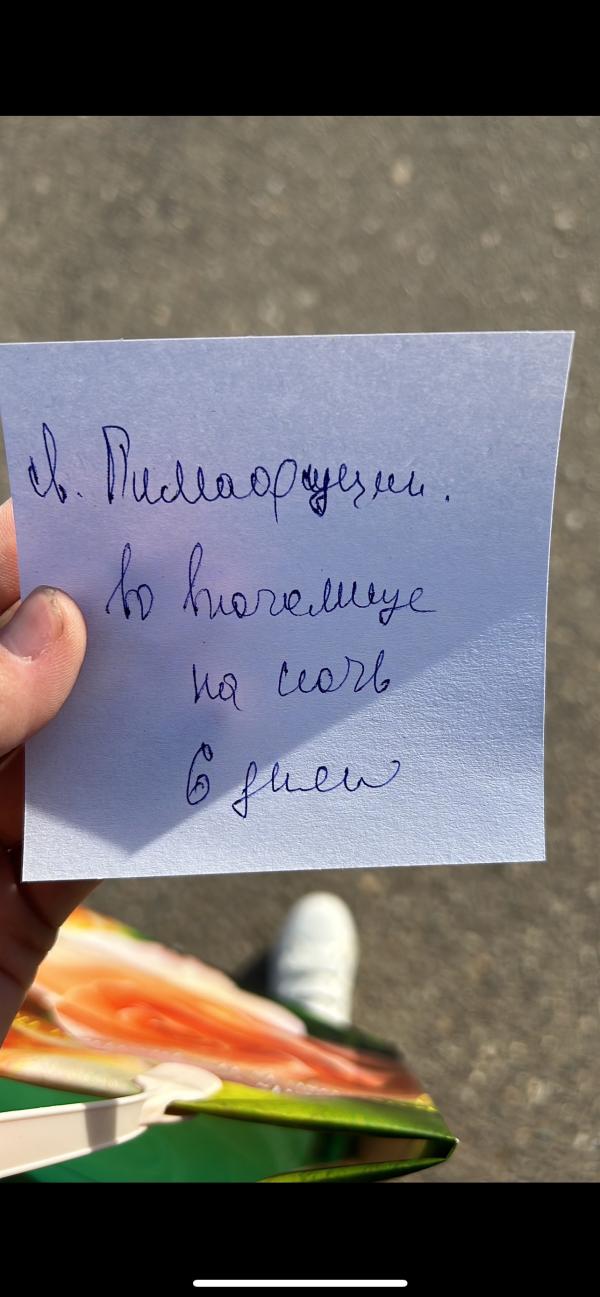 св. Пимафуцин.
во влагалище
на ночь
6 дней